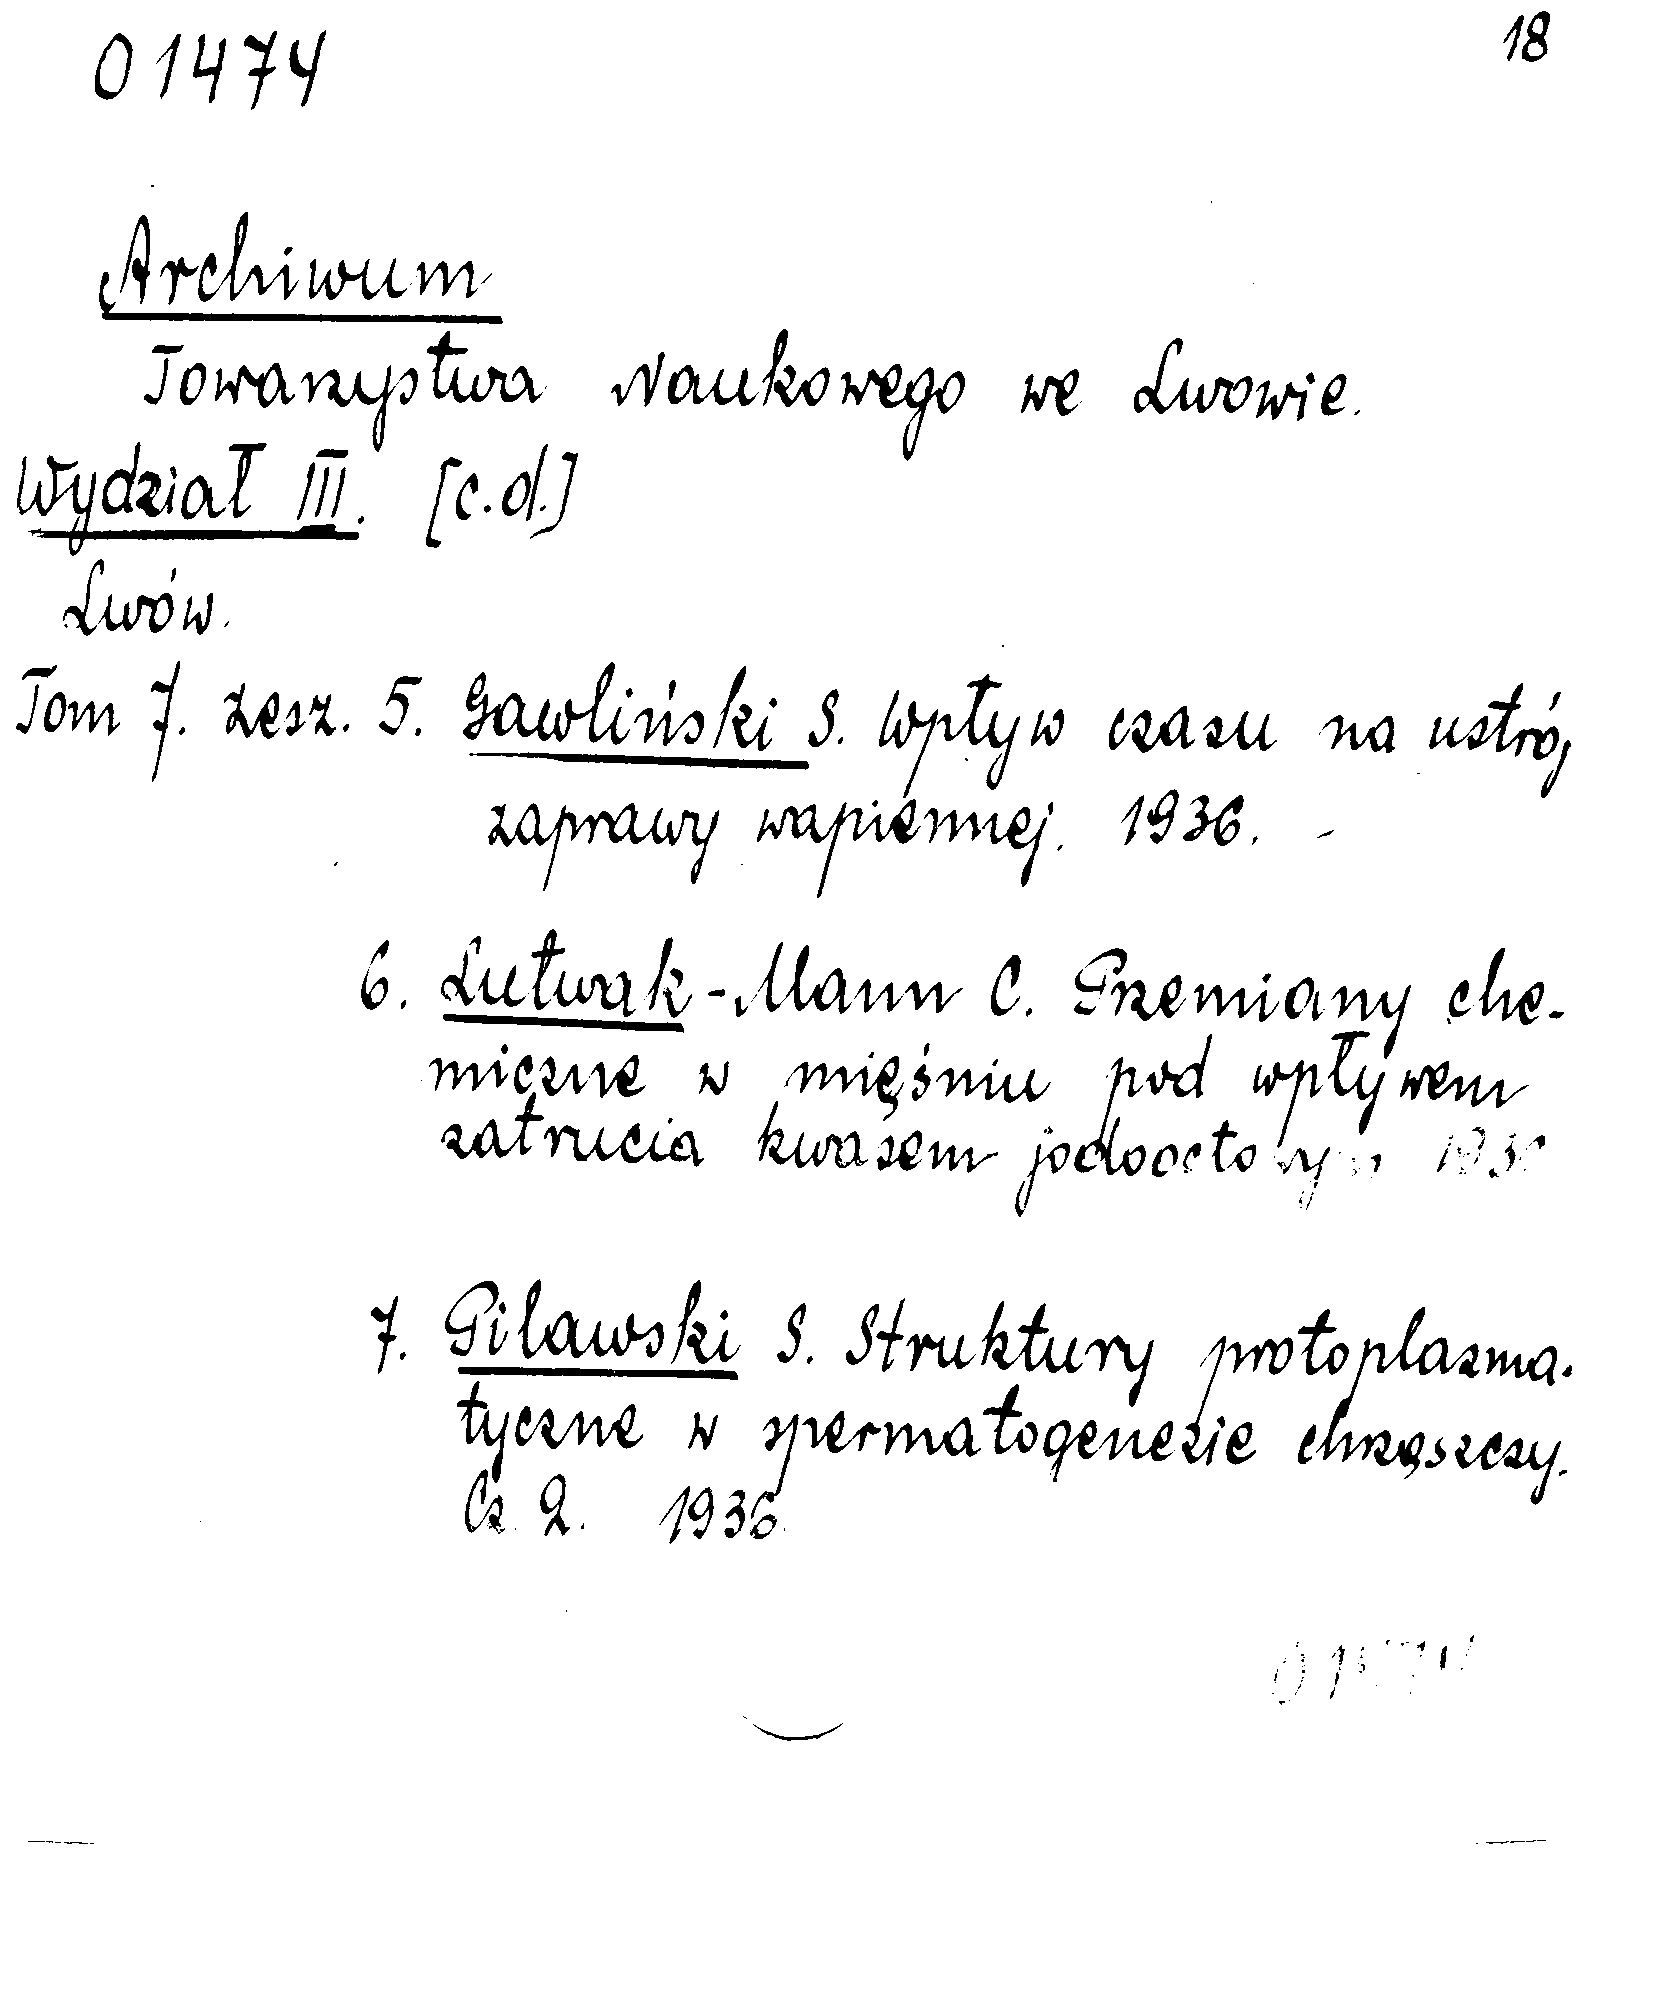 01474
18
Archiwum
Towarzystwa Naukowego we Lwowie.
Wydział III. [c.d.]
Lwów.
Tom 7. zesz. 5. Gawliński S. Wpływ czasu na ustrój
zaprawy wapiennej. 1936.
6. Lutwak-Mann C. Przemiany che-
miczne w mięśniu pod wpływem
zatrucia kwasem jodooctowym 1936
7. Pilawski S. Struktury protoplazma-
tyczne w spermatogenezie chrząszczy.
Cz. 2. 1936.